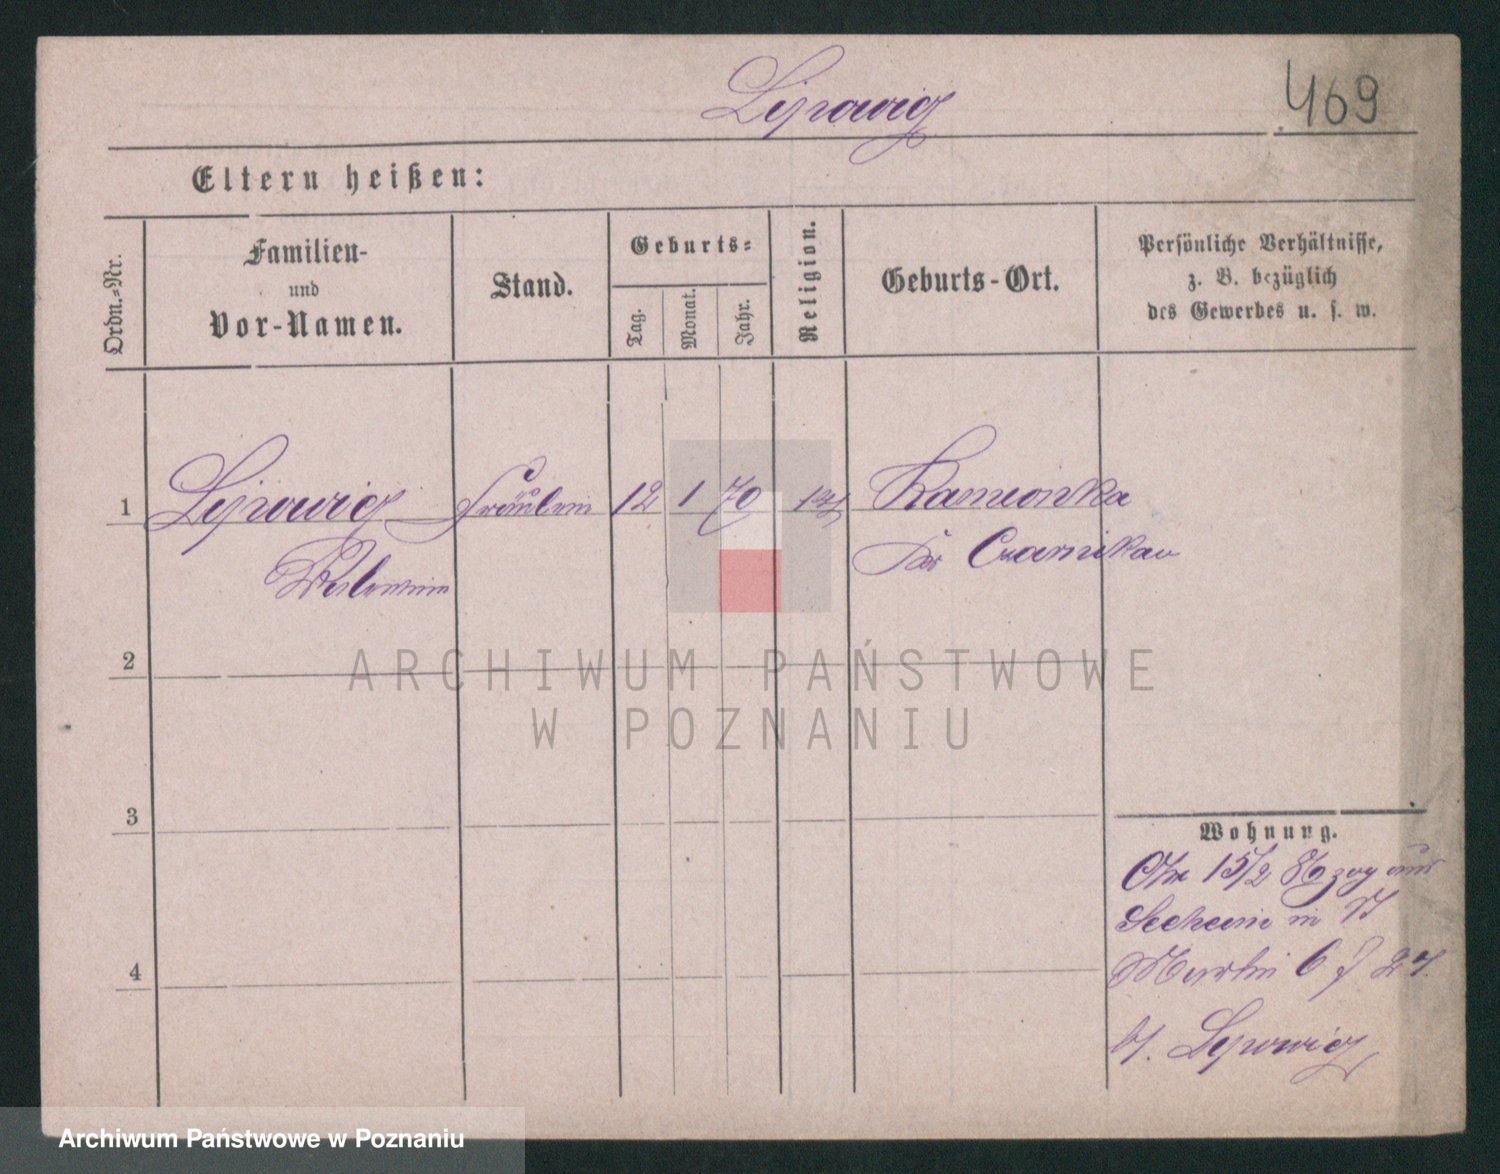 Lipowicz
469
Eltern heißen:
Ordn.-Nr.
Familien-
und
Vor-Namen.
Stand.
Geburts-
Tag.
Monat.
Jahr.
Religion.
Geburts-Ort.
Persönliche Verhältnisse,
z. B. bezüglich
des Gewerbes u. s. w.
1
Lipowicz Fräulein 12 1 70 Kamionka
Czarnikau
2
ARCHIWUM PAŃSTWOWE
W POZNANIU
3
Wohnung.
15/2 86 zog aus
in St
4
Martin 6
b/. Lipowicz
Archiwum Państwowe w Poznaniu